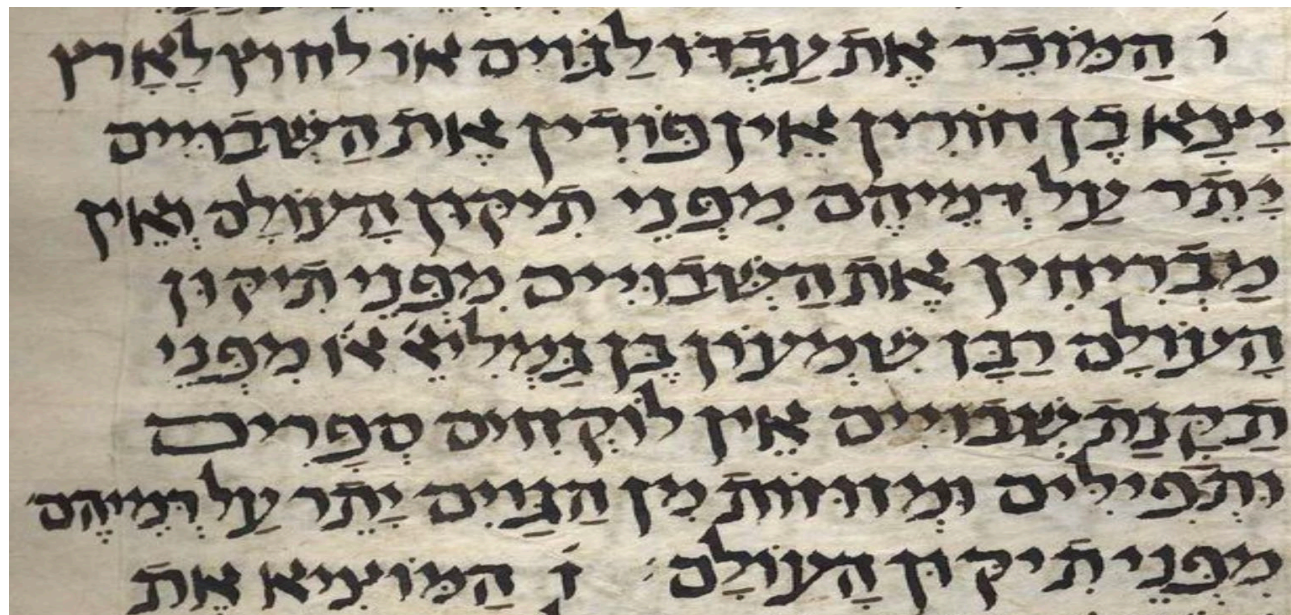 וֹ הַמּוֹכֵר אֶת עַבְדּוֹ לַגּוֹיִם אוֹ לחוּץ לָאָרֶץ
יָצָא בֶן חוֹרִין אֵין פּוֹדִין אֶת הַשְּׁבוּיִים
יָתֵר עַל דְּמֵיהֶם מִפְּנֵי תִיקּוּן הָעוֹלָם וְאֵין
מַבְרִיחִין אֶת הַשְּׁבוּיִים מִפְּנֵי תִיקּוּן
הָעוֹלָם רַבָּן שִׁמְעוֹן בֶּן גַּמְלִיאֵ׳ או׳ מִפְּנֵי
תַקָּנַת שְׁבוּיִים אֵין לוֹקְחִים סְפָרִים
וּתְפִילִּים וּמְזוּזוֹת מִן הַגּוֹיִם יָתֵר עַל דְּמֵיהֶם
מִפְּנֵי תִיקּוּן הָעוֹלָם׃ זֹ הַמּוֹצִיא אֶת